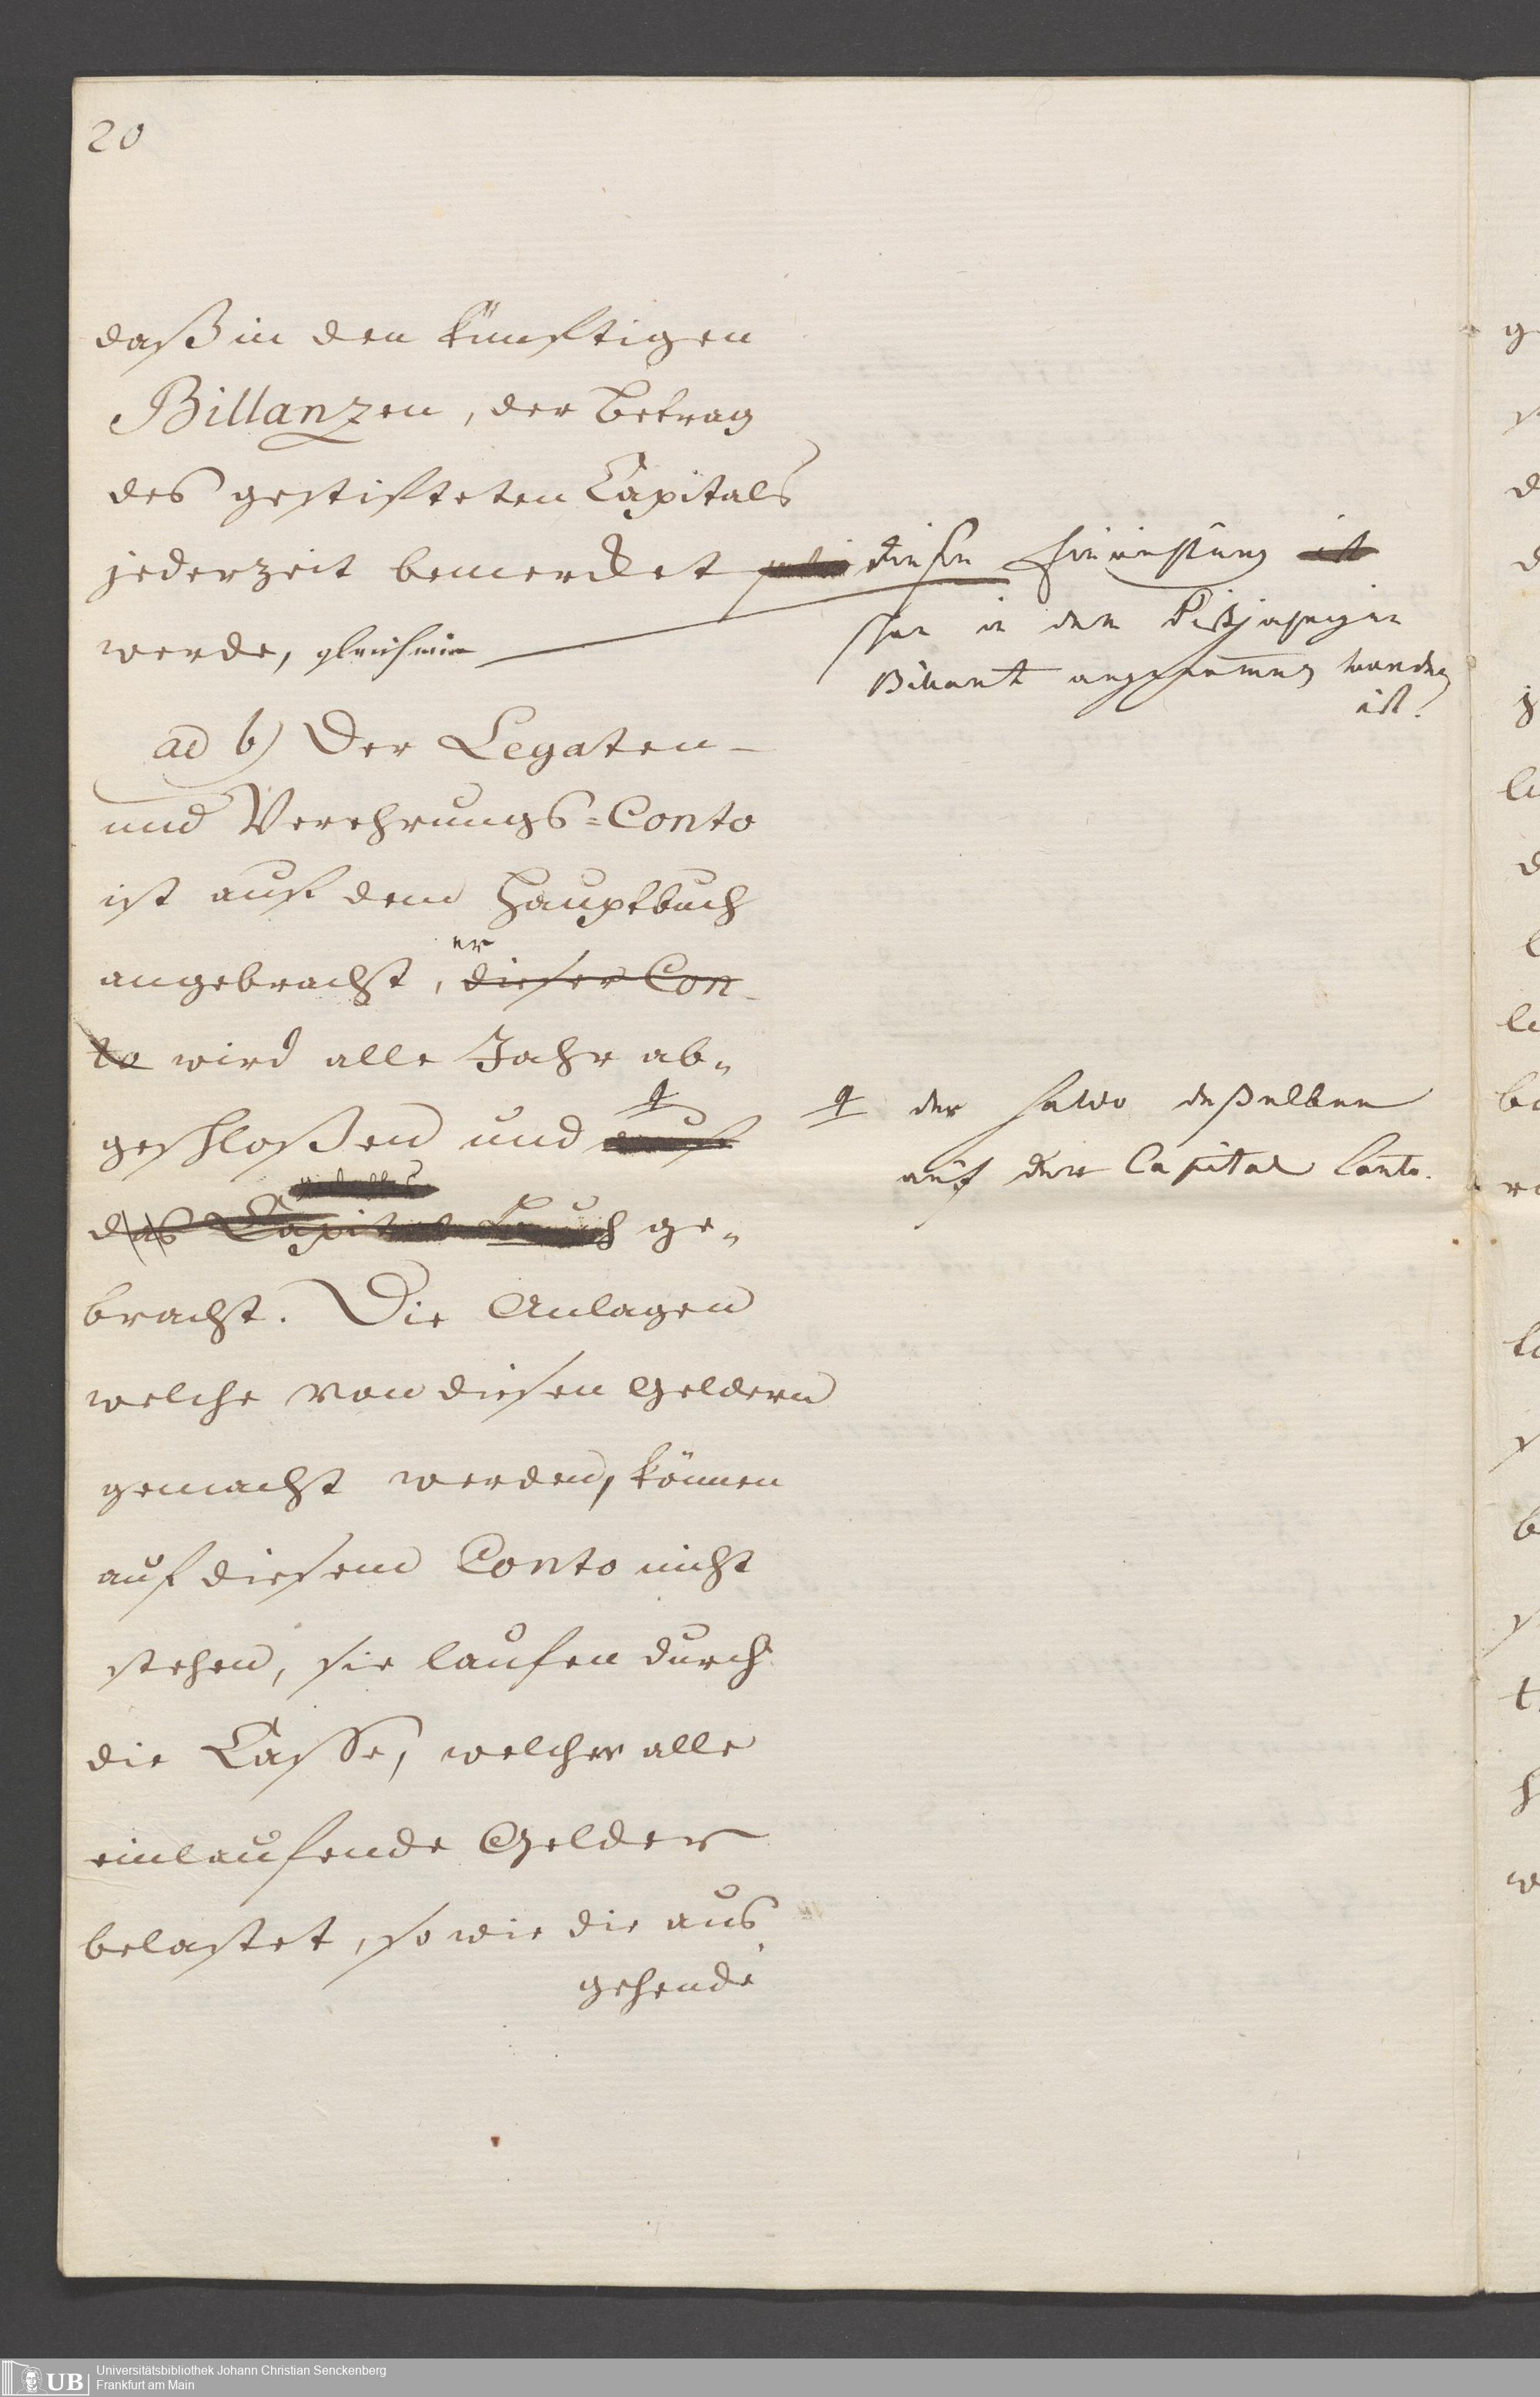 20
daß in den künftigen
Billanzen, der Betrag
des gestifteten Capitals
jederzeit bemercket
werde, gleichwie
diese Einrichtung ist
schon in der dißjährigen
Billantz angenommen worden
ist.
ad b) Der Legaten-
und Verehrungs=Conto
ist auf dem Hauptbuch
er
angebracht, dieser Con-
to wird alle Jahr ab-
geschloßen und auf
der Saldo deßselben
auf den Capital Conto.
das Capital Buch ge-
bracht. Die Anlagen
welche von diesen Geldern
gemacht werden, können
auf diesem Conto nicht
stehen, sie laufen durch
die Casse, welcher alle
einlaufende Gelder
belastet, so wie die aus
gehende
UB
Universitätsbibliothek Johann Christian Senckenberg
Frankfurt am Main